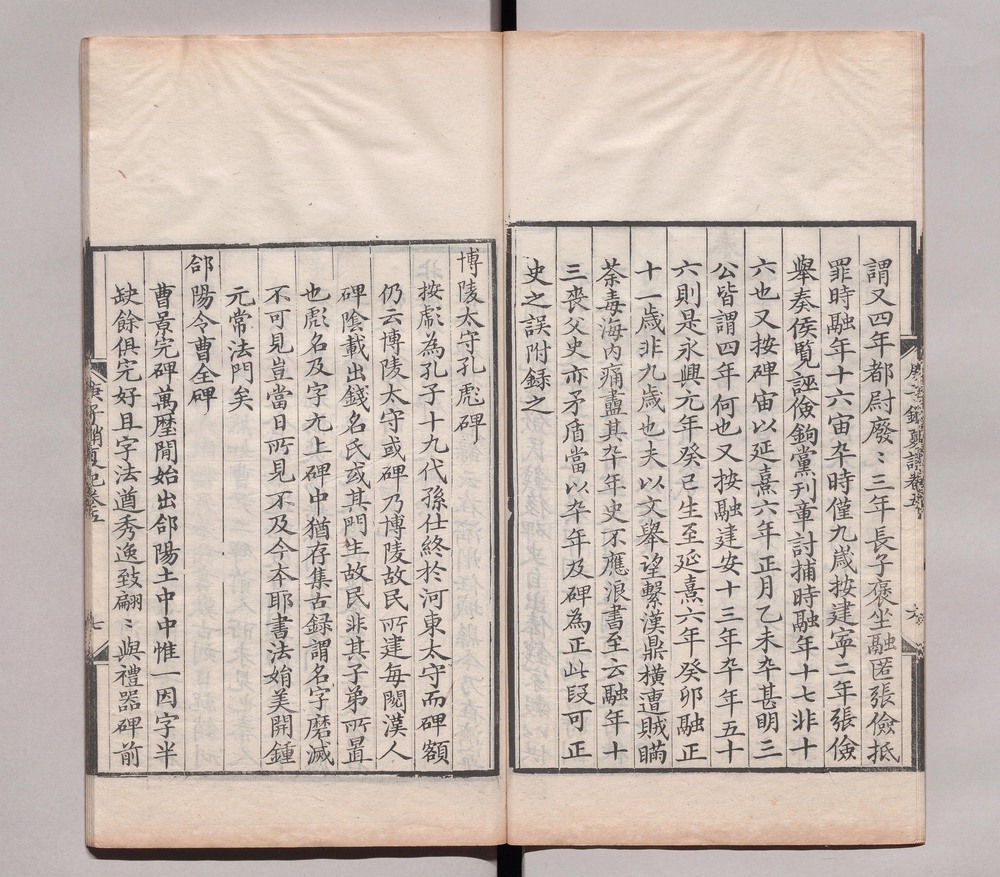 謂又四年都尉廢〻三年長子褒坐融匿張儉抵
罪時融年十六宙卒時僅九歲按建寧二年張儉
舉奏侯覽誣儉鉤黨刊章討捕時融年十七非十
六也又按碑宙以延熹六年正月乙未卒甚明三
公皆謂四年何也又按建安十三年卒年五十
六則是永興元年癸巳生至延熹六年癸卯融正
十一歲非九歲也夫以文舉望繫漢鼎橫遭賊瞞
荼毒海內痛盡其卒年史不應浪書至云融年十
三喪父史亦矛盾當以卒年及碑為正此段可正
史之誤附錄之
博陵太守孔彪碑
按彪為孔子十九代孫仕終於河東太守而碑額
仍云博陵太守或碑乃博陵故民所建每閱漢人
碑陰載出錢名氏或其門生故民非其子弟所置
也彪名及字元上碑中猶存集古録謂名字磨滅
不可見豈當日所見不及今本耶書法娟美開鍾
元常法門矣
郃陽令曹全碑
曹景完碑萬曆間始出郃陽土中中惟一因字半
缺餘俱完好且字法遒秀逸致翩〻與禮器碑前
庚子銷夏記卷五
七